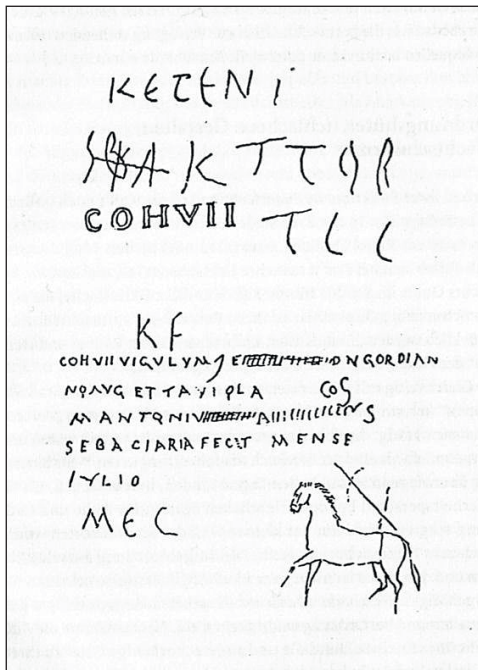 KETENI
K TTOP
COHVII TCC
KF
COHVII VIGVLVM DNGORDIAN
NOAVG ET TAVIOLA COS
MANTONI
SEBARIA FECIT MENSE
IVLIO
MEC